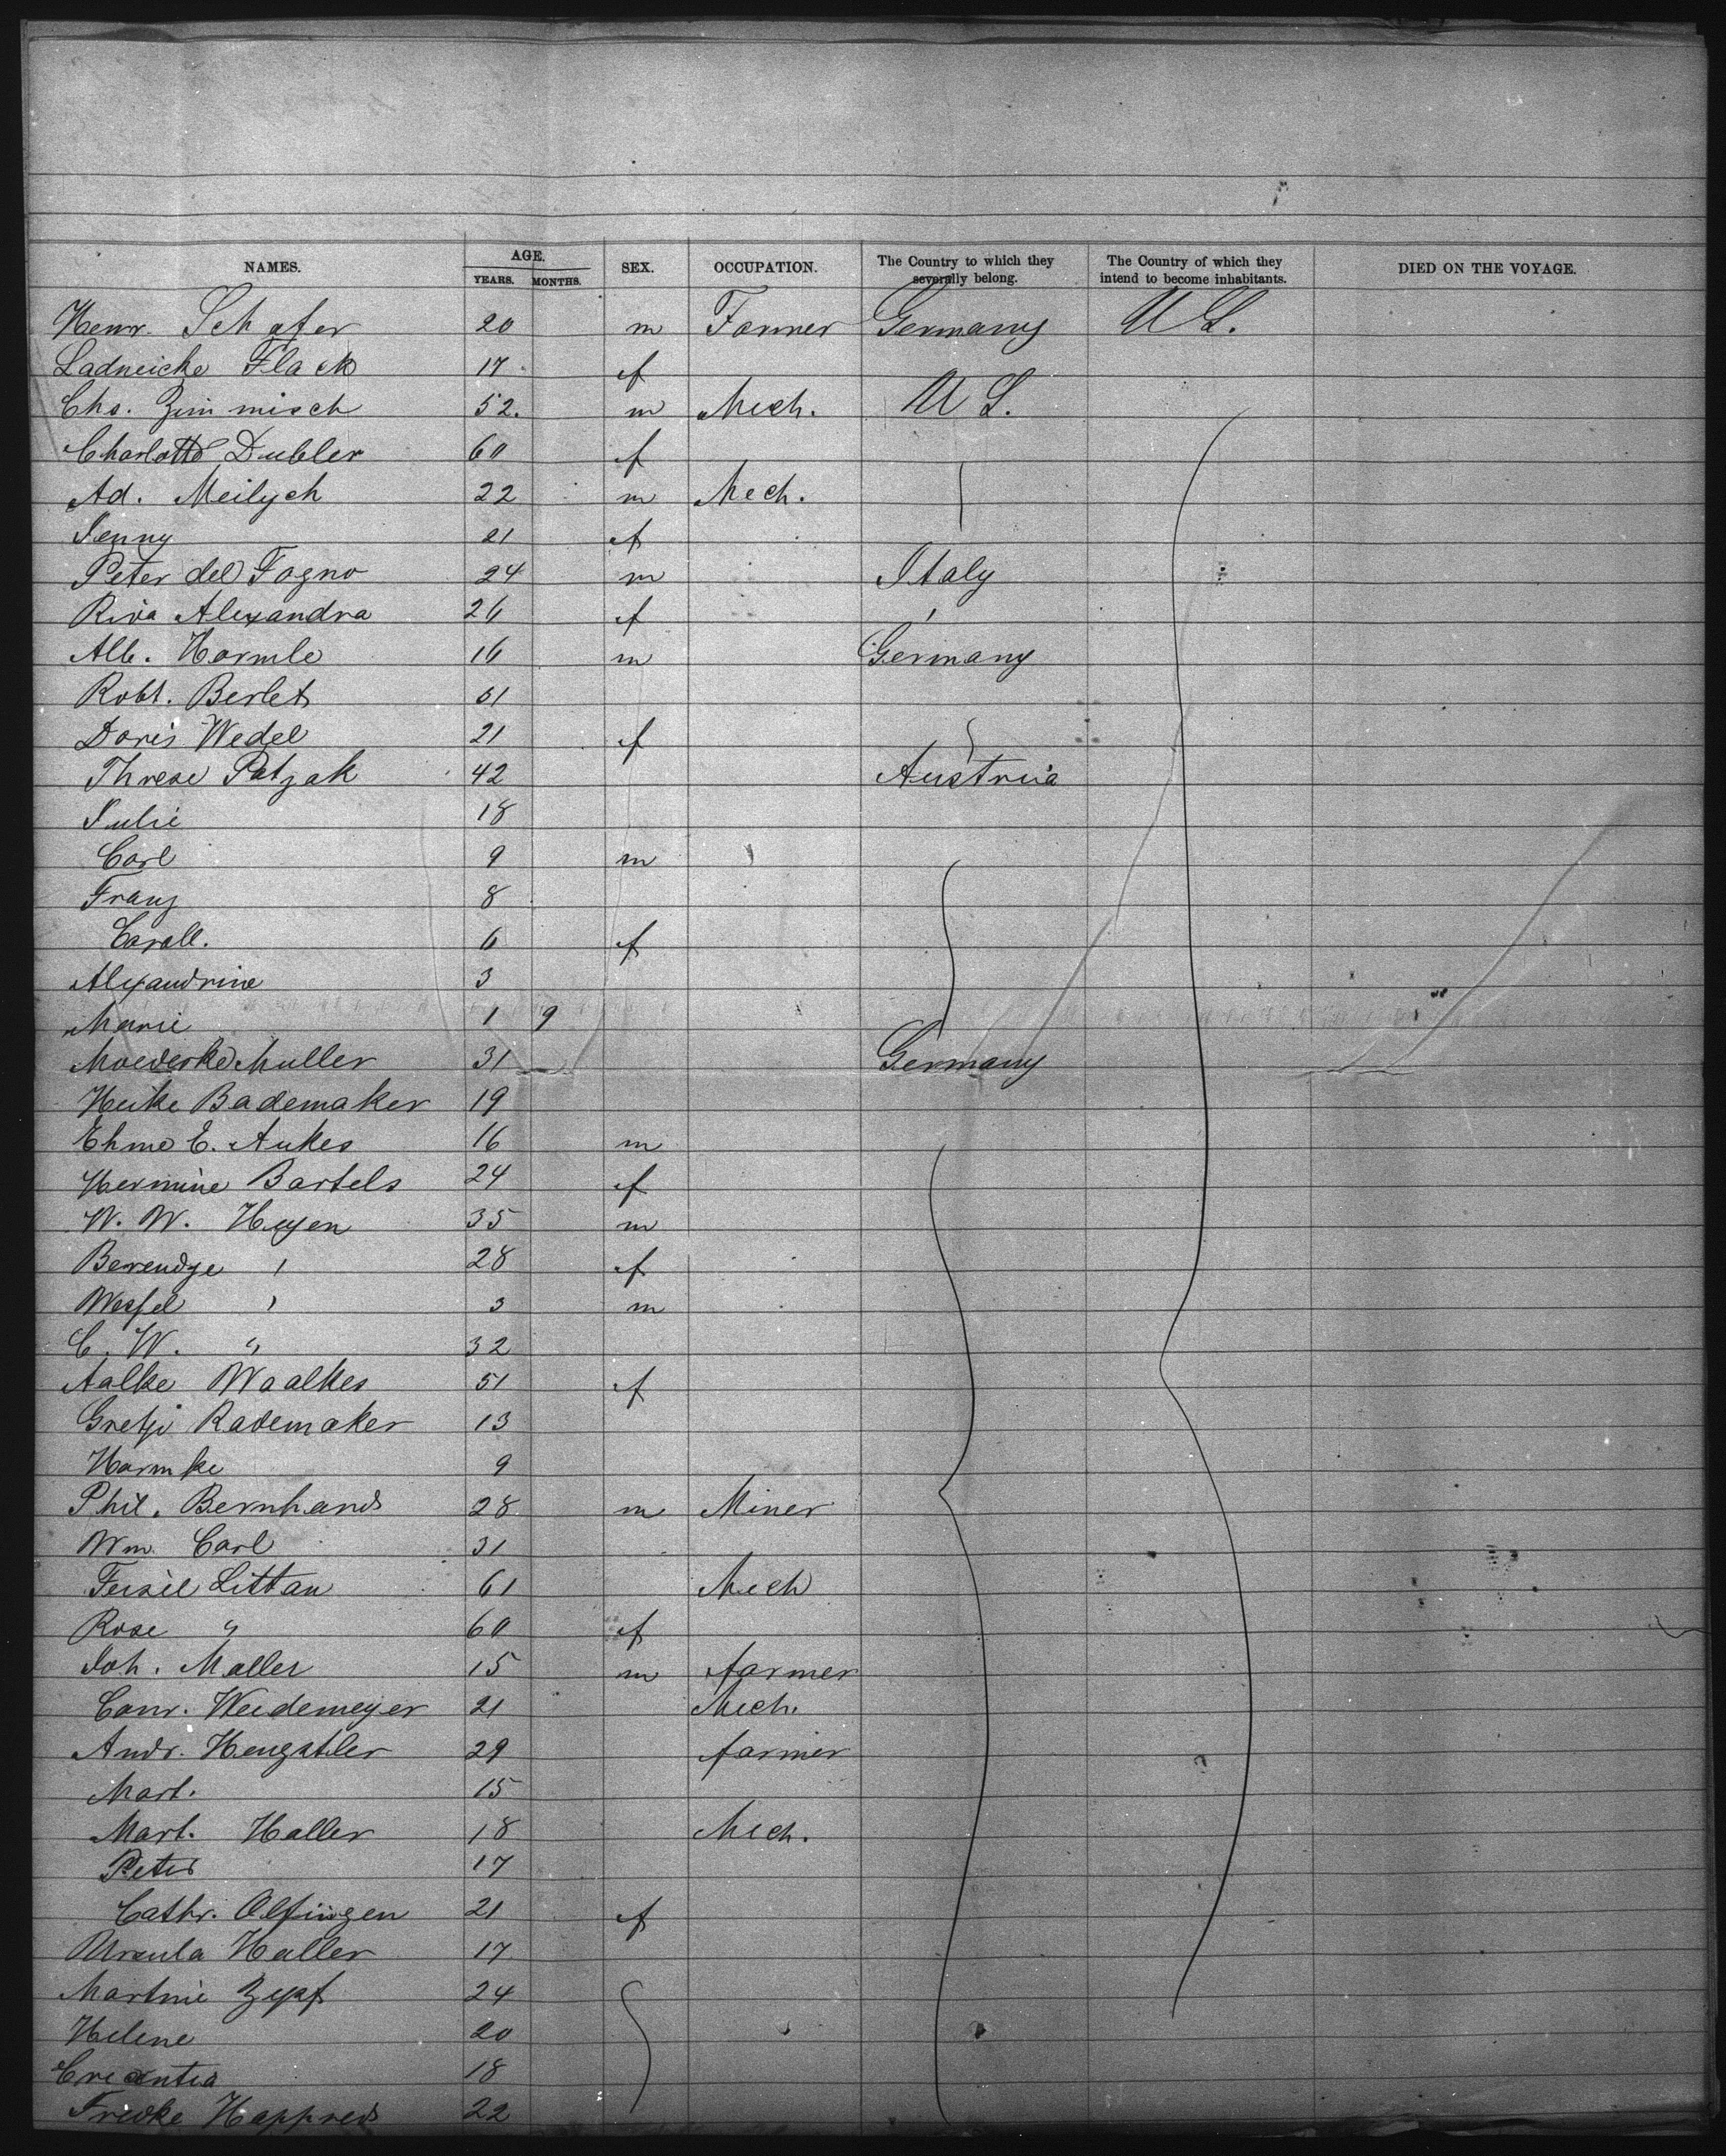 NAMES. AGE. YEARS. MONTHS. SEX. OCCUPATION. The Country to which they severally belong. The Country of which they intend to become inhabitants. DIED ON THE VOYAGE.
Henr. Schafer 20 m Farmer Germany U S.
Ladneicke Flack 17 f
Chs. Zimmisch 52. m Mech. U S.
Charlotte Dubler 60 f
Ad. Meilych 22 m Mech.
Jenny 21 f
Peter del Fogno 24 m Italy
Riva Alexandra 26 f
Alb. Hormle 16 m Germany
Robt. Berlet 31
Doris Wedel 21 f
Threse Patzak 42 Austria
Julie 18
Carl 9 m
Franz 8
Caroll. 6 f
Alexandrine 3
Marie 1 9
Muller 31 Germany
Heike Bademaker 19
Ehme E. Aukes 16 m
Hermine Bartels 24 f
W. W. Heyen 35 m
Berendge " 28 f
Wessel " 3 m
C. W. " 32
Aalke Waalkes 51 f
Gretje Rademaker 13
Harmke 9
Phil. Bernhards 28 m Miner
Wm. Carl 31
Littau 61 Mech
Rose " 60 f
Joh. Moller 15 m farmer
Conr. Weidemeyer 21 Mech.
Andr. Hengstler 29 farmer
Mart. 15
Mart. Haller 18 Mech.
Peter 17
Cathr. Olfingen 21 f
Ursula Haller 17
Martine Zypf 24
Helene 20
Crecentia 18
Fredke Happreds 22